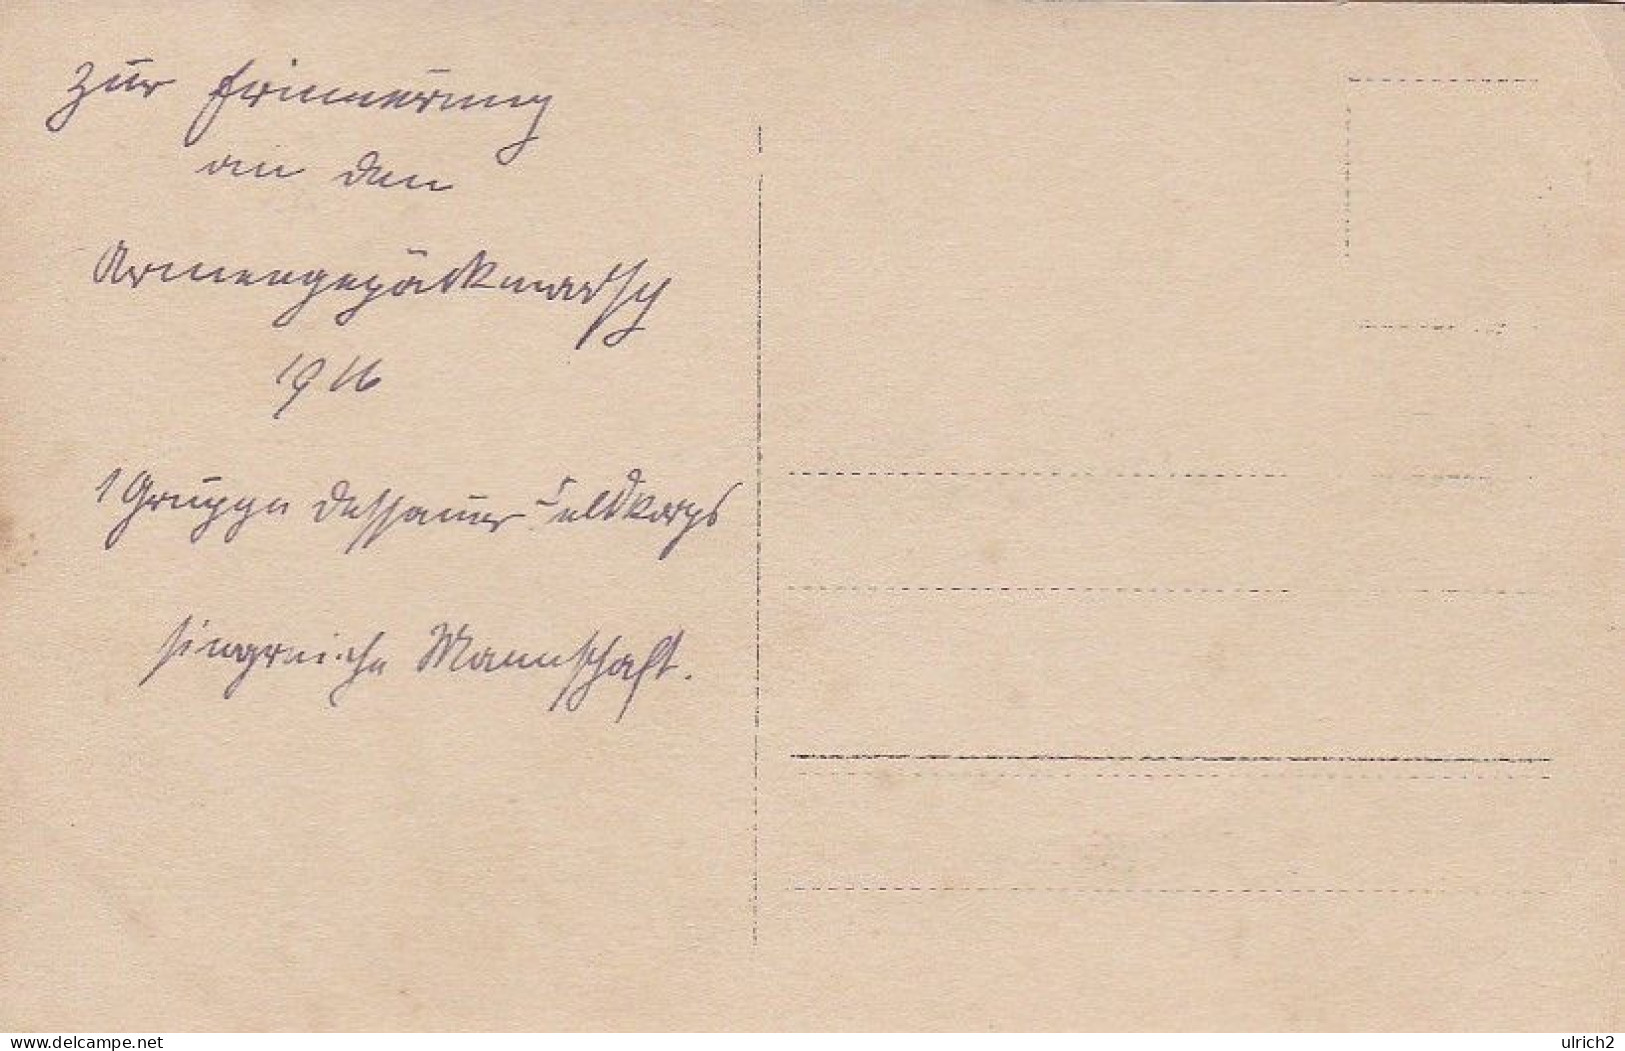 zur Erinnerung
an den
Armeegepäckmarsch
1916
1 Gruppe Dessauer Feldkorps
siegreiche Mannschaft.
www.delcampe.net
ulrich2